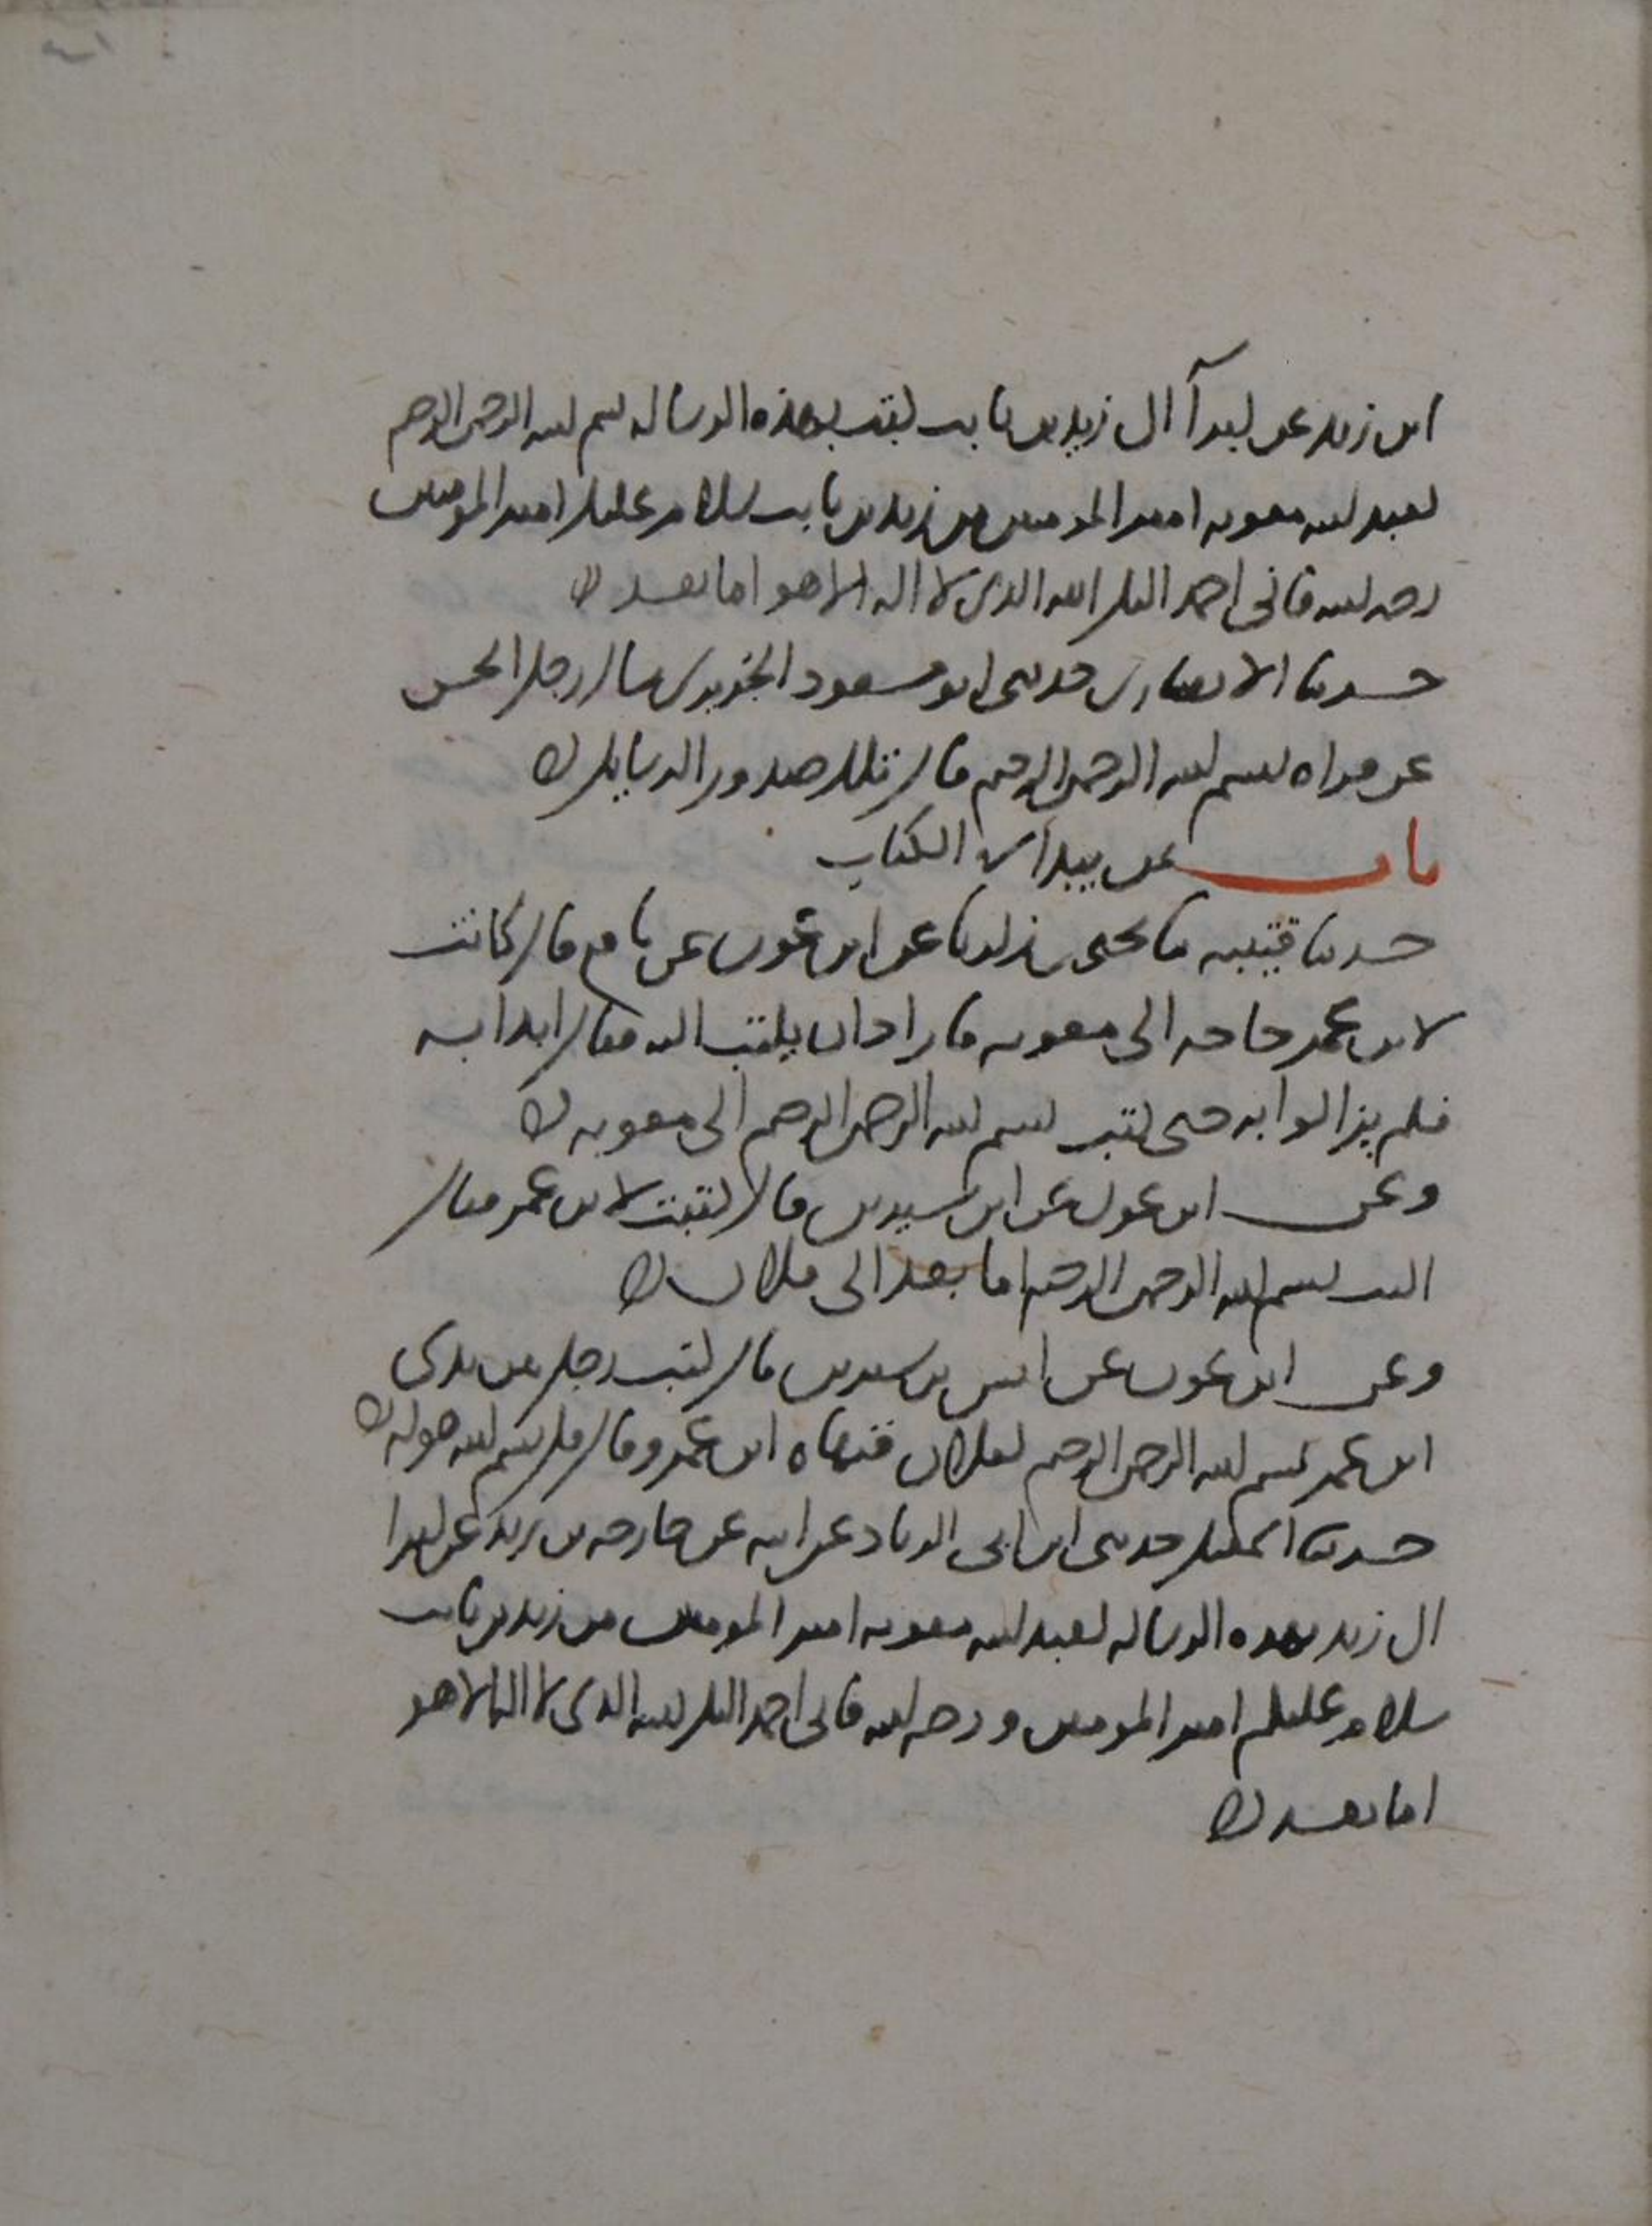 ابن زيد عن كبرآ ال زيد بن ثابت كتب بهذه الرساله بسم الله الرحمن الرحيم
لعبد الله معويه امير المومنين من زيد بن ثابت سلام عليك امير المومنين
ورحمه الله فاني احمد اليك الله الذي لا اله الا هو اما بعد
حدثنا الانصاري حدثني ابو مسعود الجريري سال رجل الحسن
عن قراه بسم الله الرحمن الرحيم قال تلك صدور الرسايل
باب من يبدا في الكتاب
حدثنا قتيبه نا يحيى بن زكريا عن ابن عون عن نافع قال كانت
لابن عمر حاجه الى معويه فاراد ان يكتب اليه فقال ابدا به
فلم يزالوا به حتى كتب بسم الله الرحمن الرحيم الى معويه
وعن ابن عون عن ابن سيرين قال كتبت لابن عمر فقال
اكتب بسم الله الرحمن الرحيم اما بعد الى فلان
وعن ابن عون عن انس بن سيرين قال كتب رجل بين يدي
ابن عمر بسم الله الرحمن الرحيم لفلان فنهاه ابن عمر وقال قل بسم الله هو له
حدثنا اسمعيل حدثني ابن ابي الزناد عن ابيه عن خارجه بن زيد عن كبرا
ال زيد بهذه الرساله لعبد الله معويه امير المومنين من زيد بن ثابت
سلام عليكم امير المومنين ورحمه الله فاني احمد اليك الله الذي لا اله الا هو
اما بعد